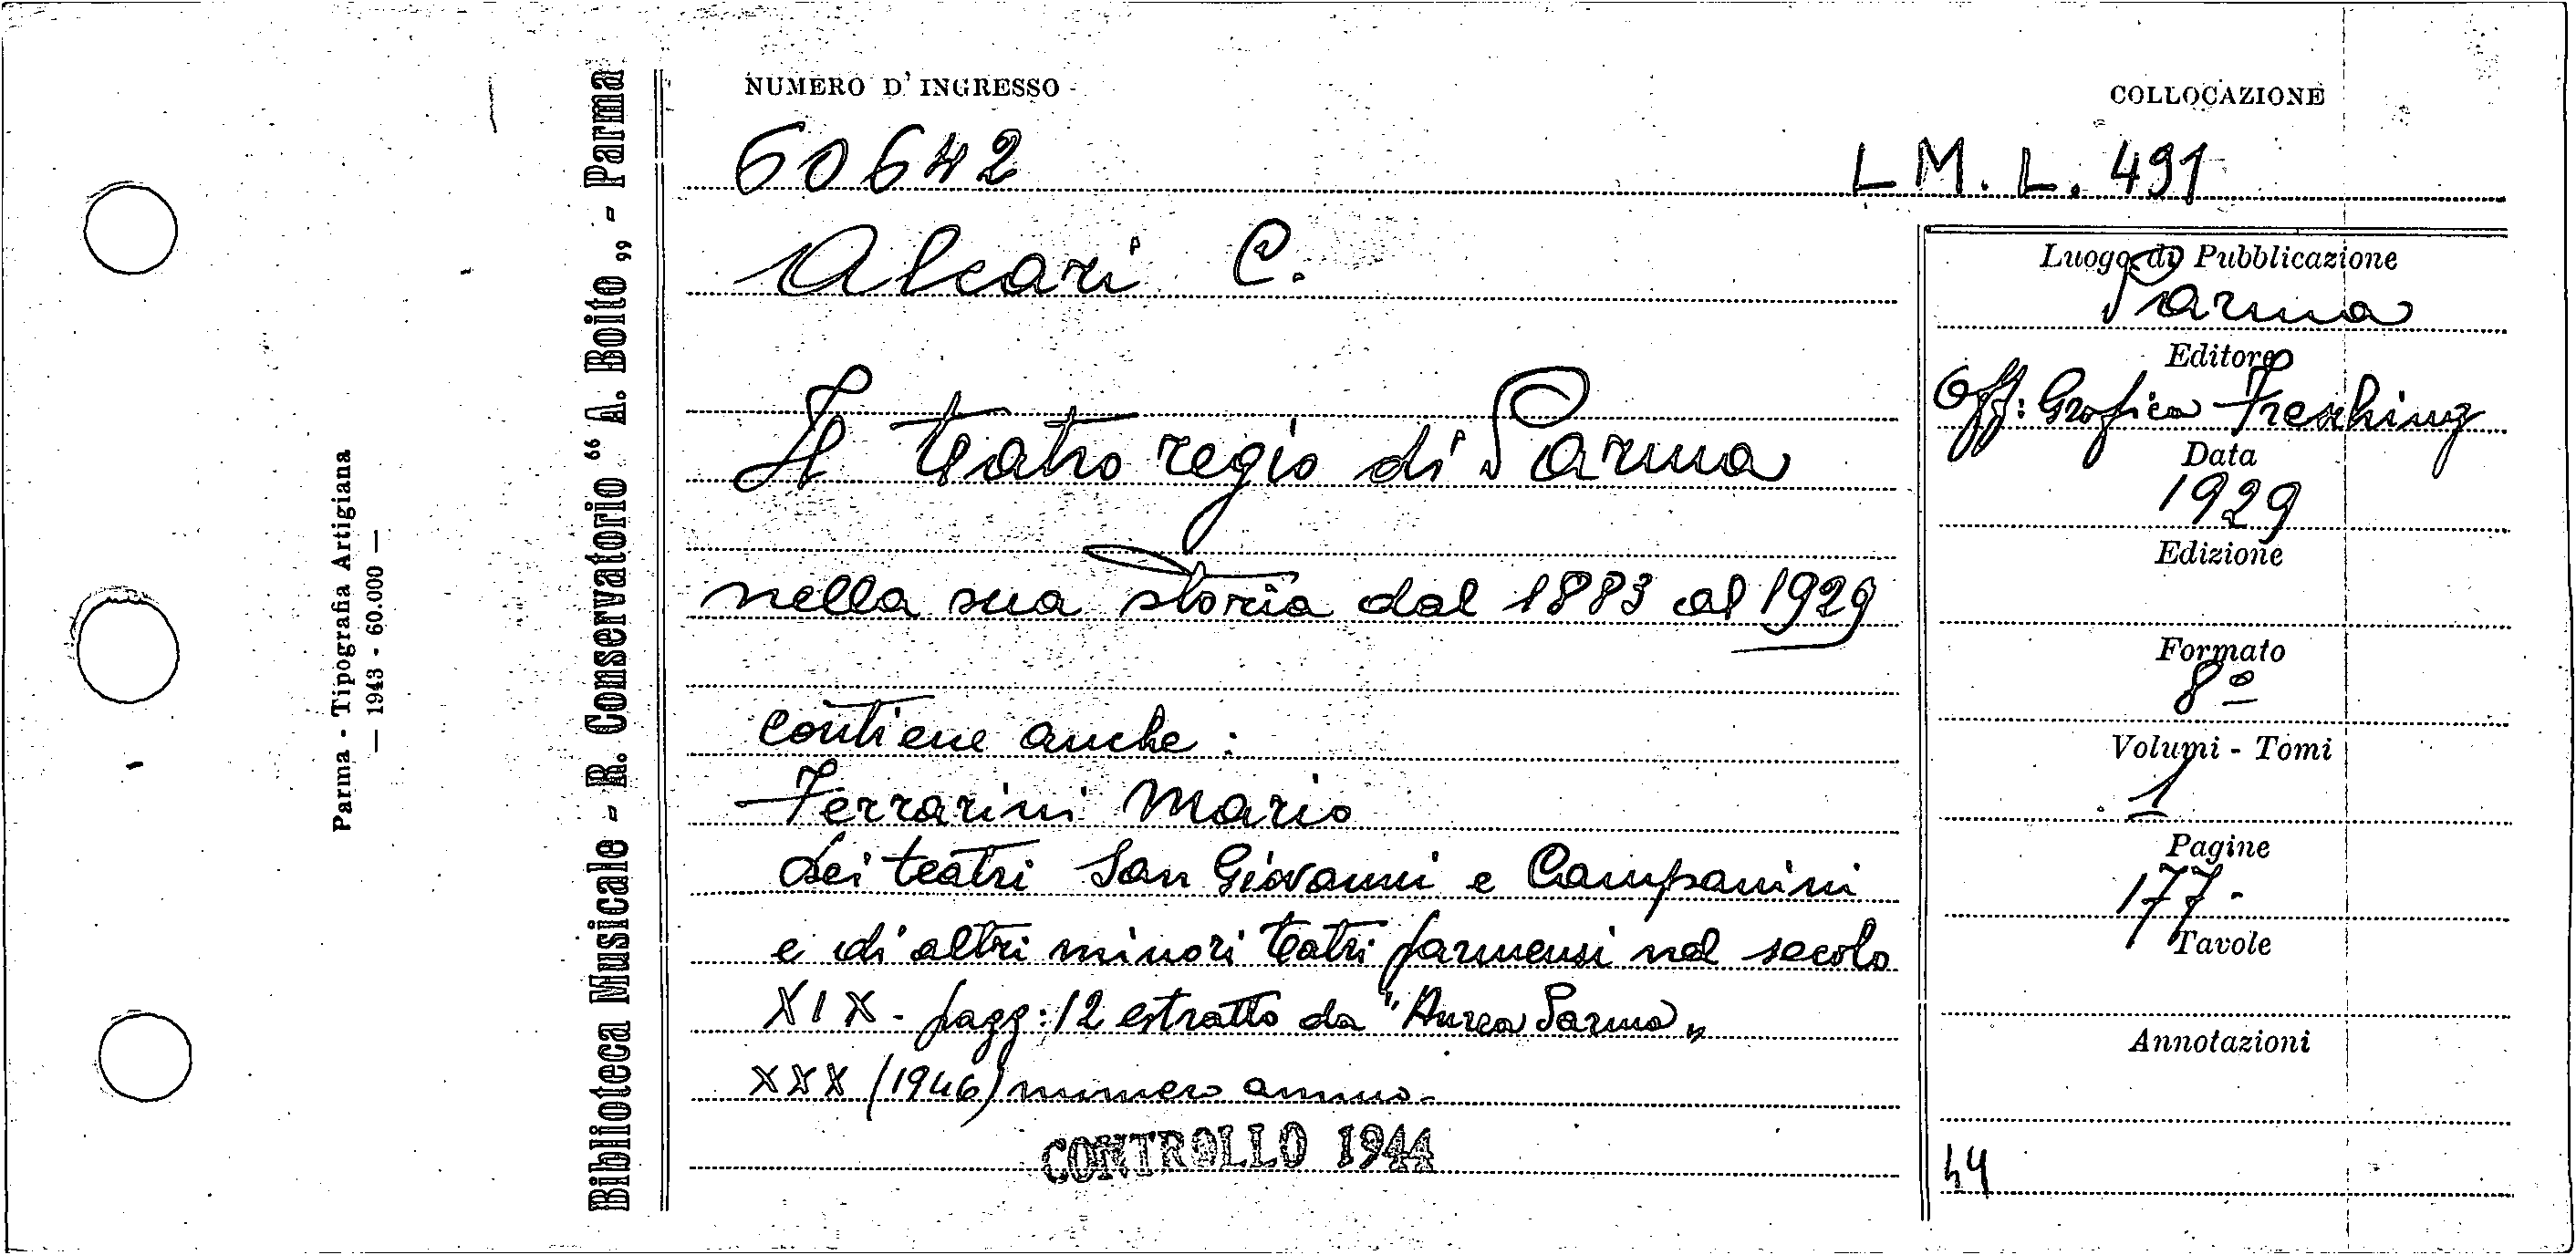 NUMERO D' INGRESSO
COLLOCAZIONE
60642
L M. L. 491
Alcari C.
Il teatro regio di Parma
nella sua storia dal 1883 al 1929
contiene anche :
Ferrarini Mario
Dei teatri San Giovanni e Campanini
e di altri minori teatri parmensi nel secolo
XIX - pagg: 12 estratto da "Aurea Parma„
XXX (1946) numero
CONTROLLO 1944
Luogo di Pubblicazione
Parma
Editore
Off: Grafica Fresching
Data
1929
Edizione
Formato
8º
Volumi - Tomi
1
Pagine
177 -
Tavole
Annotazioni
Biblioteca Musicale - R. Conservatorio “ A. Boito „ - Parma
Parma - Tipografia Artigiana
— 1943 - 60.000 —